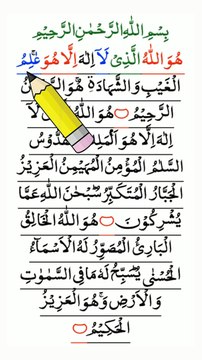 بِسْمِ اللّٰهِ الرَّحْمٰنِ الرَّحِيْمِ
هُوَ اللّٰهُ الَّذِیْ لَاۤ اِلٰهَ اِلَّا هُوَ عٰلِمُ
الْغَيْبِ وَالشَّهَادَةِ هُوَ
الرَّحِيْمُ هُوَ اللّٰهُ لَاۤ
اِلٰهَ اِلَّا هُوَ
السَّلٰمُ الْمُؤْمِنُ الْمُهَيْمِنُ الْعَزِيْزُ
الْجَبَّارُ الْمُتَكَبِّرُ سُبْحٰنَ اللّٰهِ عَمَّا
يُشْرِكُوْنَ هُوَ اللّٰهُ الْخَالِقُ
الْبَارِئُ الْمُصَوِّرُ لَهُ الْاَسْمَآءُ
الْحُسْنٰی يُسَبِّحُ لَهٗ مَا فِی السَّمٰوٰتِ
وَالْاَرْضِ وَهُوَ الْعَزِيْزُ
الْحَكِيْمُ